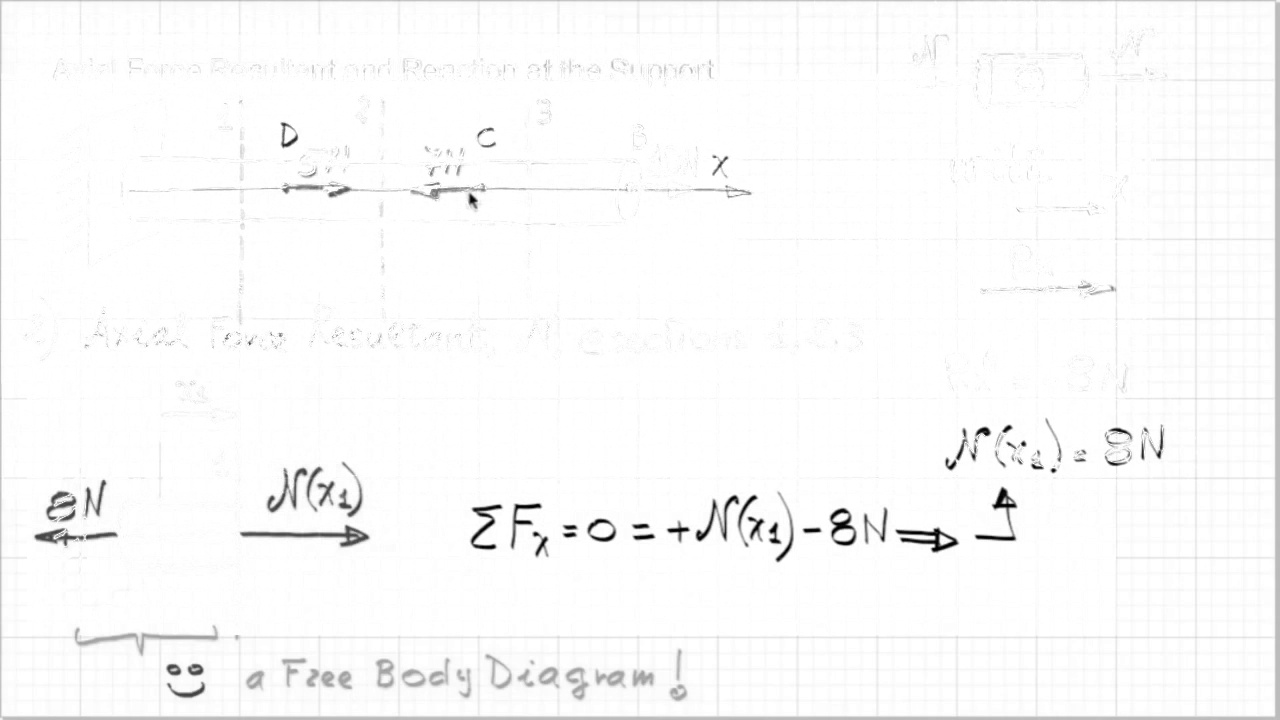 Axial Force Resultant and Reaction at the Support
N N
1 2 3
D C B
5N 7N X
2) Axial Force Resultant, N, @ sections 1,2,3
8N
N(x₁) = 8N
8N N(x₁) ΣFₓ = 0 = +N(x₁) - 8N ⇒
a Free Body Diagram!